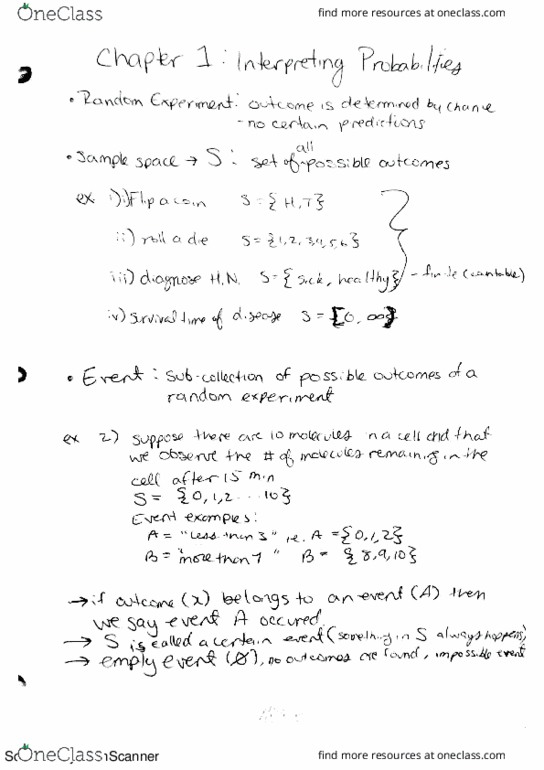 OneClass find more resources at oneclass.com
Chapter 1: Interpreting Probabilities
• Random Experiment: outcome is determined by chance
- no certain predictions
all
• Sample space → S: set of possible outcomes
ex 1) i) Flip a coin S = {H,T}
ii) roll a die S = {1,2,3,4,5,6}
iii) diagnose H.N. S = {sick, healthy} - finite (countable)
iv) survival time of disease S = [0, ∞}
• Event: sub-collection of possible outcomes of a
random experiment
ex 2) suppose there are 10 molecules in a cell and that
we observe the # of molecules remaining in the
cell after 15 min
S = {0,1,2...10}
Event examples:
A = "less than 3" i.e. A = {0,1,2}
B = "more than 7" B = {8,9,10}
→ if outcome (x) belongs to an event (A) then
we say event A occured.
→ S is called a certain event (something in S always happens)
→ empty event (Ø), no outcomes are found, impossible event
OneClass Scanner find more resources at oneclass.com